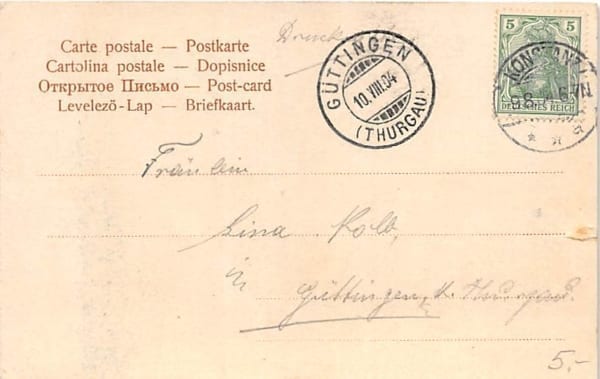 Carte postale — Postkarte
Cartolina postale — Dopisnice
Открытое Письмо — Post-card
Levelező-Lap — Briefkaart.
GÜTTINGEN
10.VIII.04
(THURGAU)
5 5
DEUTSCHES REICH
KONSTANZ
Fräulein
Lina Kolb,
in
Güttingen, Thurgau.
5.-